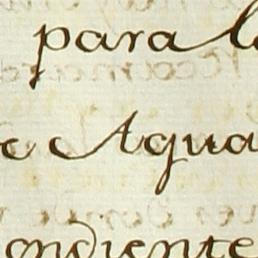 para l
e Agua
ondiente